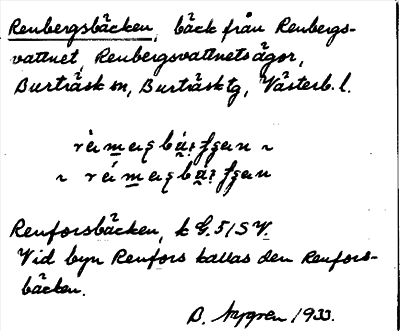 Renbergsbäcken, bäck från Renbergs-
vattnet, Renbergsvattnets ägor,
Burträsk sn, Burträsk tg, Västerb. l.
Renforsbäcken, k G. 5/SV.
Vid byn Renfors kallas den Renfors-
bäcken.
B. Nygren 1933.